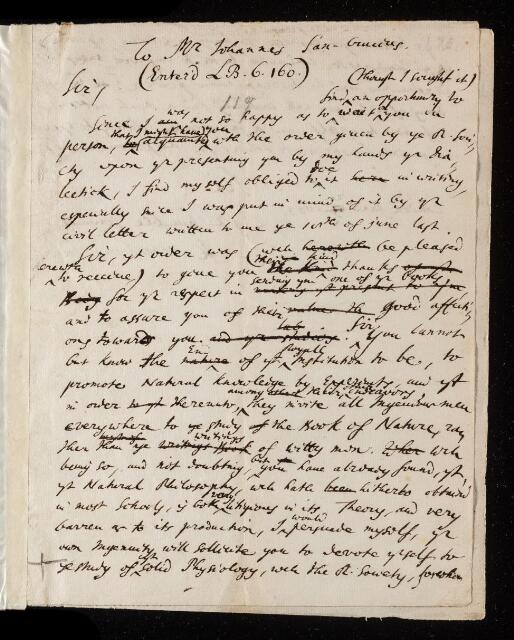 To Mr Johannes San-
(Enter'd L.B. 6. 160.)
(though I sought it)
Sir,
118
find an opportunity to
Since I was am not so happy as to wait you in
person, that I might have you acquainted with the order given by ye R. Soci-
ety upon yr presenting ym by my hands yr Dia-
lectick, I find my self obliged to doe it here in writing,
especially since I was put in mind of it by yr
civil letter written to me ye 10th of June last.
Sir, yt order was (wch herewith be pleased
herewith to receive) to give you their kind thanks
for yr respect in sending ym one of yr Books
and to assure you of their good affecti-
ons towards you. Sir, you cannot
but know the nature End of yt Royall Institution to be, to
promote Natural knowledge by Experiments, and yt
in order thereunto, among other their Endeavors, they invite all Ingenious men
everywhere to ye study of the Book of Nature, ra-
ther than ye writings of witty men. wch
being so, and not doubting, but you have already found, yt,
yt Natural Philosophy, wch hath been hitherto obtain'd
in most Schools, is both very litigious in its Theory, and very
barren as to its production, I would persuade myself, yr
own Ingenuity will sollicite you to devote yrself to
ye study of solid Physiology, wch the R. Society,